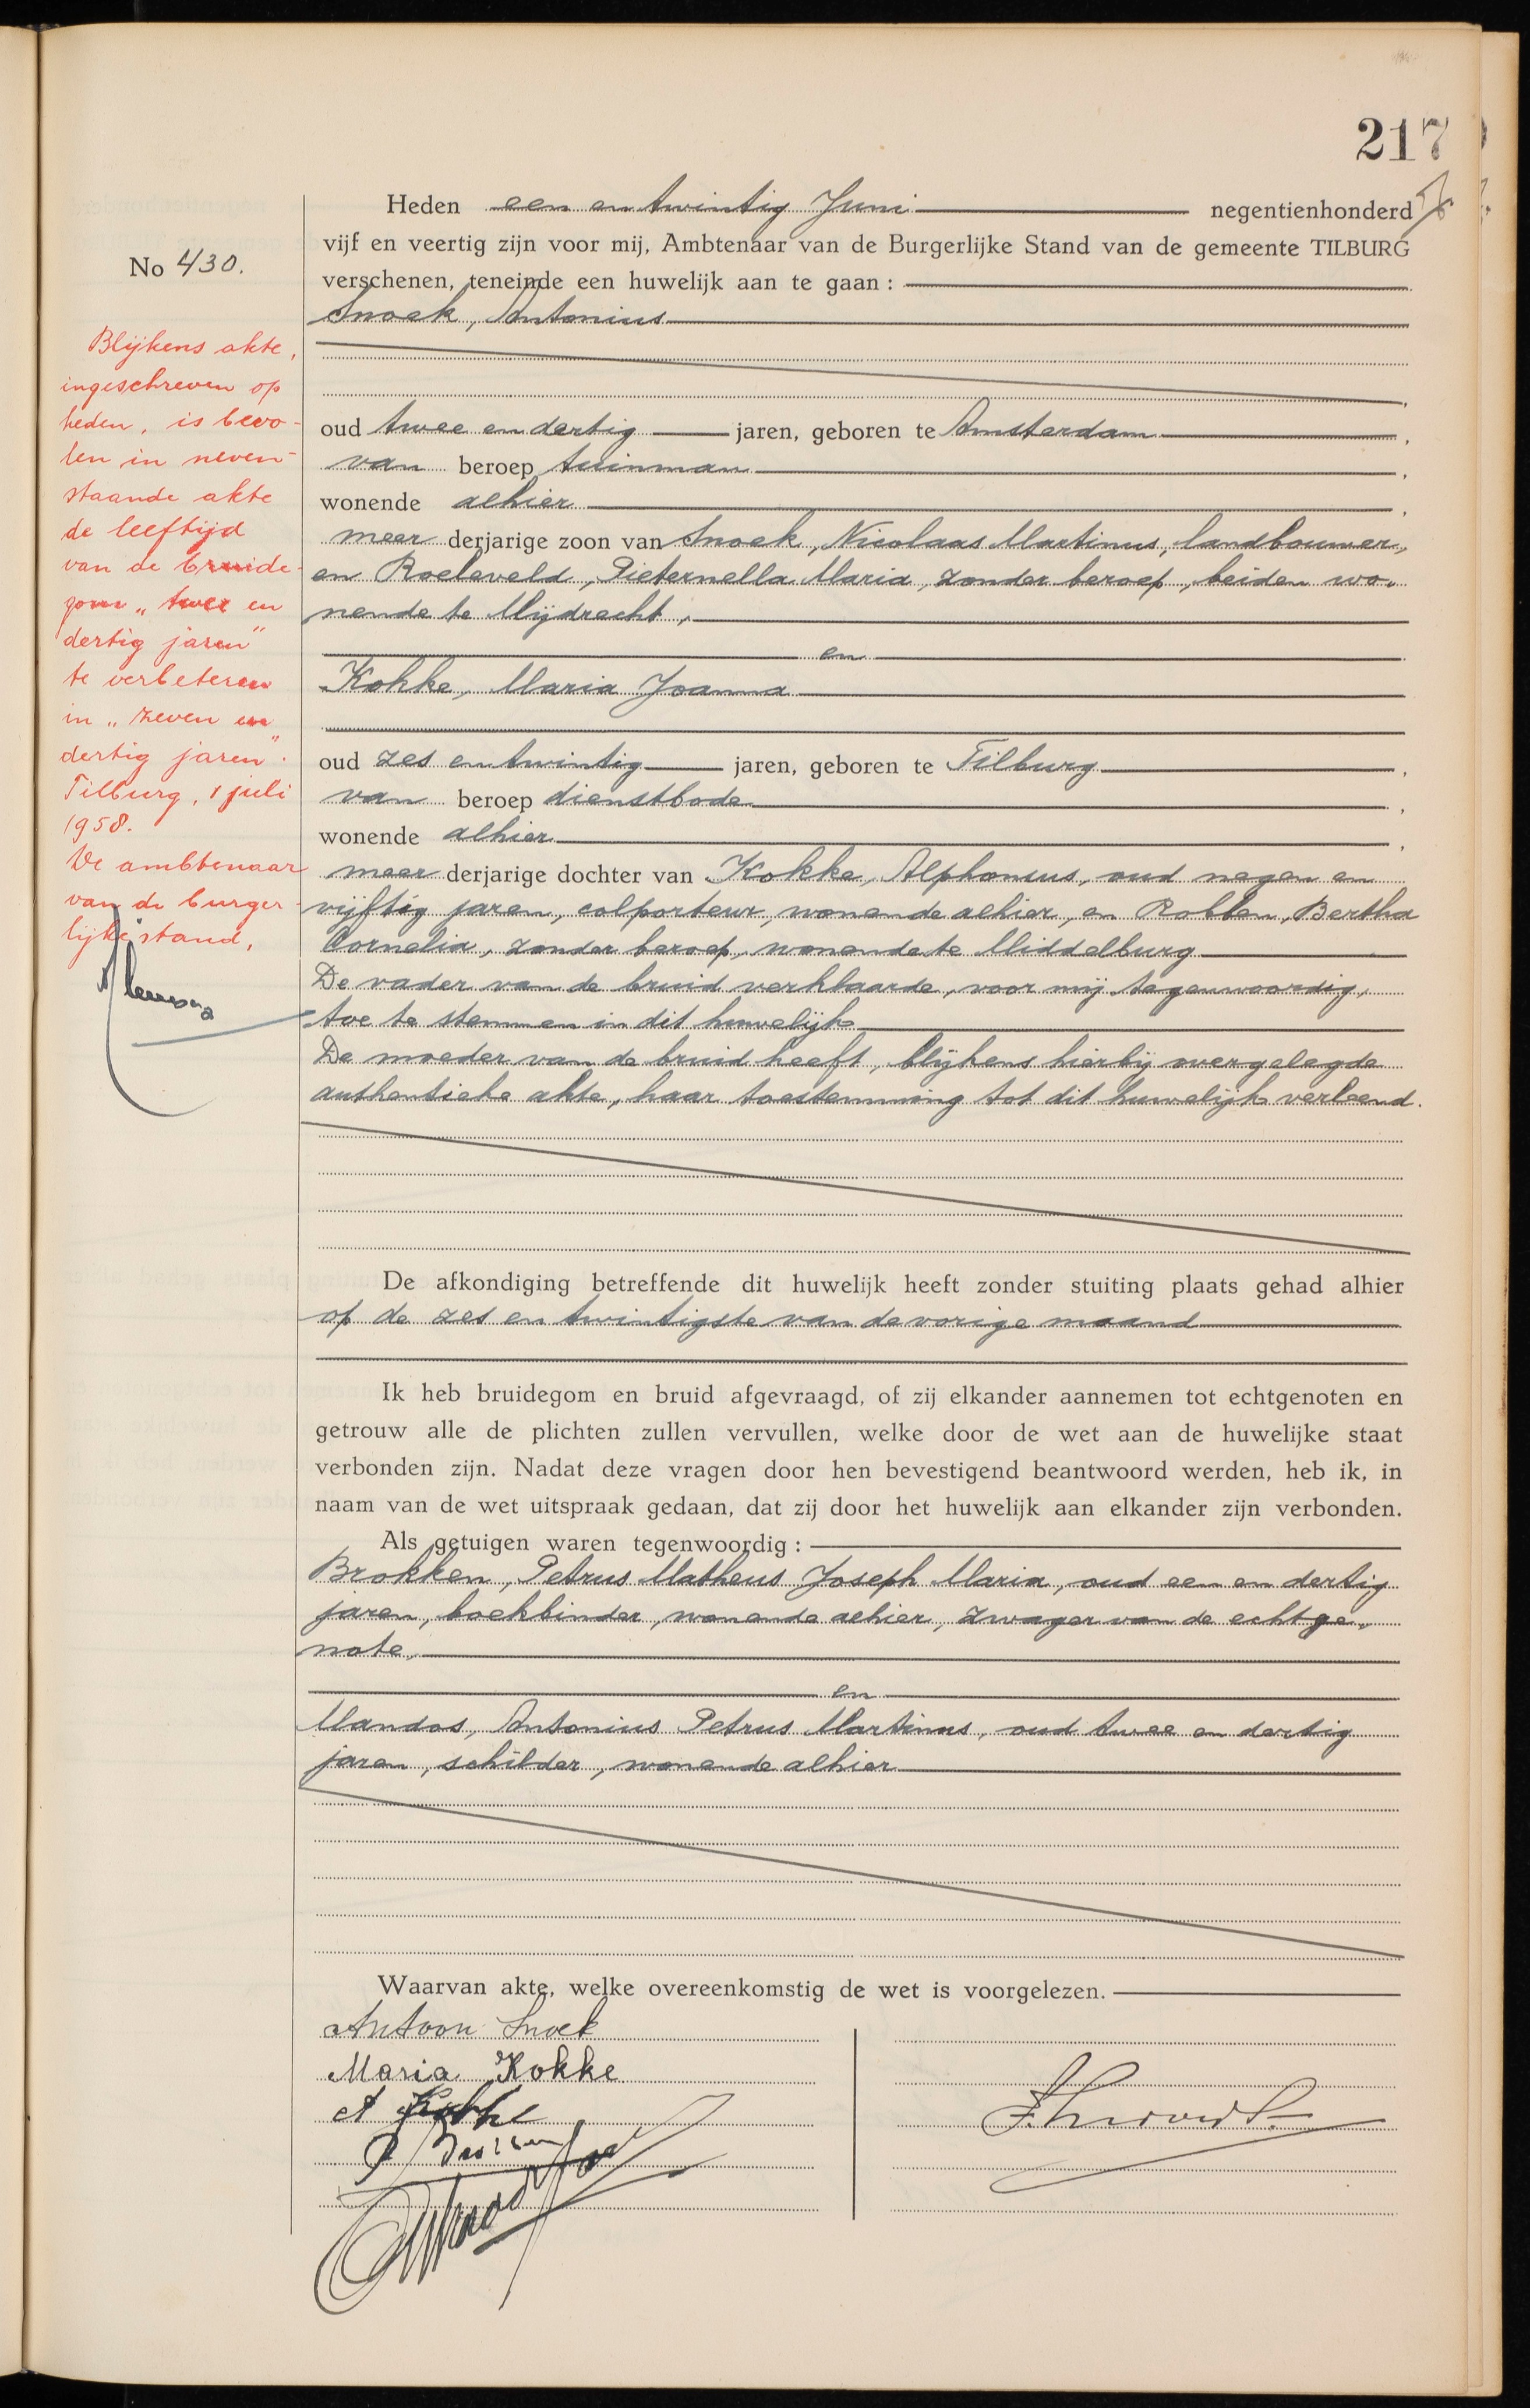 217
Heden een en twintig Juni negentienhonderd
vijf en veertig zijn voor mij, Ambtenaar van de Burgerlijke Stand van de gemeente TILBURG
verschenen, teneinde een huwelijk aan te gaan :
Snoek, Antonius
oud twee en dertig jaren, geboren te Amsterdam,
van beroep tuinman,
wonende alhier,
meer derjarige zoon van Snoek, Nicolaas Martinus, landbouwer,
en Roeleveld, Pieternella Maria, zonder beroep, beiden wo-
nende te Mijdrecht,
en
Kokke, Maria Joanna
oud zes en twintig jaren, geboren te Tilburg,
van beroep dienstbode,
wonende alhier,
meer derjarige dochter van Kokke, Alphonsus, oud negen en
vijftig jaren, colporteur, wonende alhier, en Robben, Bertha
Cornelia, zonder beroep, wonende te Middelburg
De vader van de bruid verklaarde, voor mij tegenwoordig,
toe te stemmen in dit huwelijk
De moeder van de bruid heeft, blijkens hierbij overgelegde
authentieke akte, haar toestemming tot dit huwelijk verleend.
De afkondiging betreffende dit huwelijk heeft zonder stuiting plaats gehad alhier
op de zes en twintigste van de vorige maand
Ik heb bruidegom en bruid afgevraagd, of zij elkander aannemen tot echtgenoten en
getrouw alle de plichten zullen vervullen, welke door de wet aan de huwelijke staat
verbonden zijn. Nadat deze vragen door hen bevestigend beantwoord werden, heb ik, in
naam van de wet uitspraak gedaan, dat zij door het huwelijk aan elkander zijn verbonden.
Als getuigen waren tegenwoordig :
Brokken, Petrus Matheus Joseph Maria, oud een en dertig
jaren, boekbinder, wonende alhier, zwager van de echtge-
note,
en
Mandos, Antonius Petrus Martinus, oud twee en dertig
jaren, schilder, wonende alhier
Waarvan akte, welke overeenkomstig de wet is voorgelezen.
Antoon Snoek
Maria Kokke
A Kokke
No 430.
Blijkens akte,
ingeschreven op
heden, is bevo-
len in neven-
staande akte
de leeftijd
van de bruide-
gom „twee en
dertig jaren"
te verbeteren
in „zeven en
dertig jaren".
Tilburg, 1 juli
1958.
De ambtenaar
van de burger-
lijke stand,